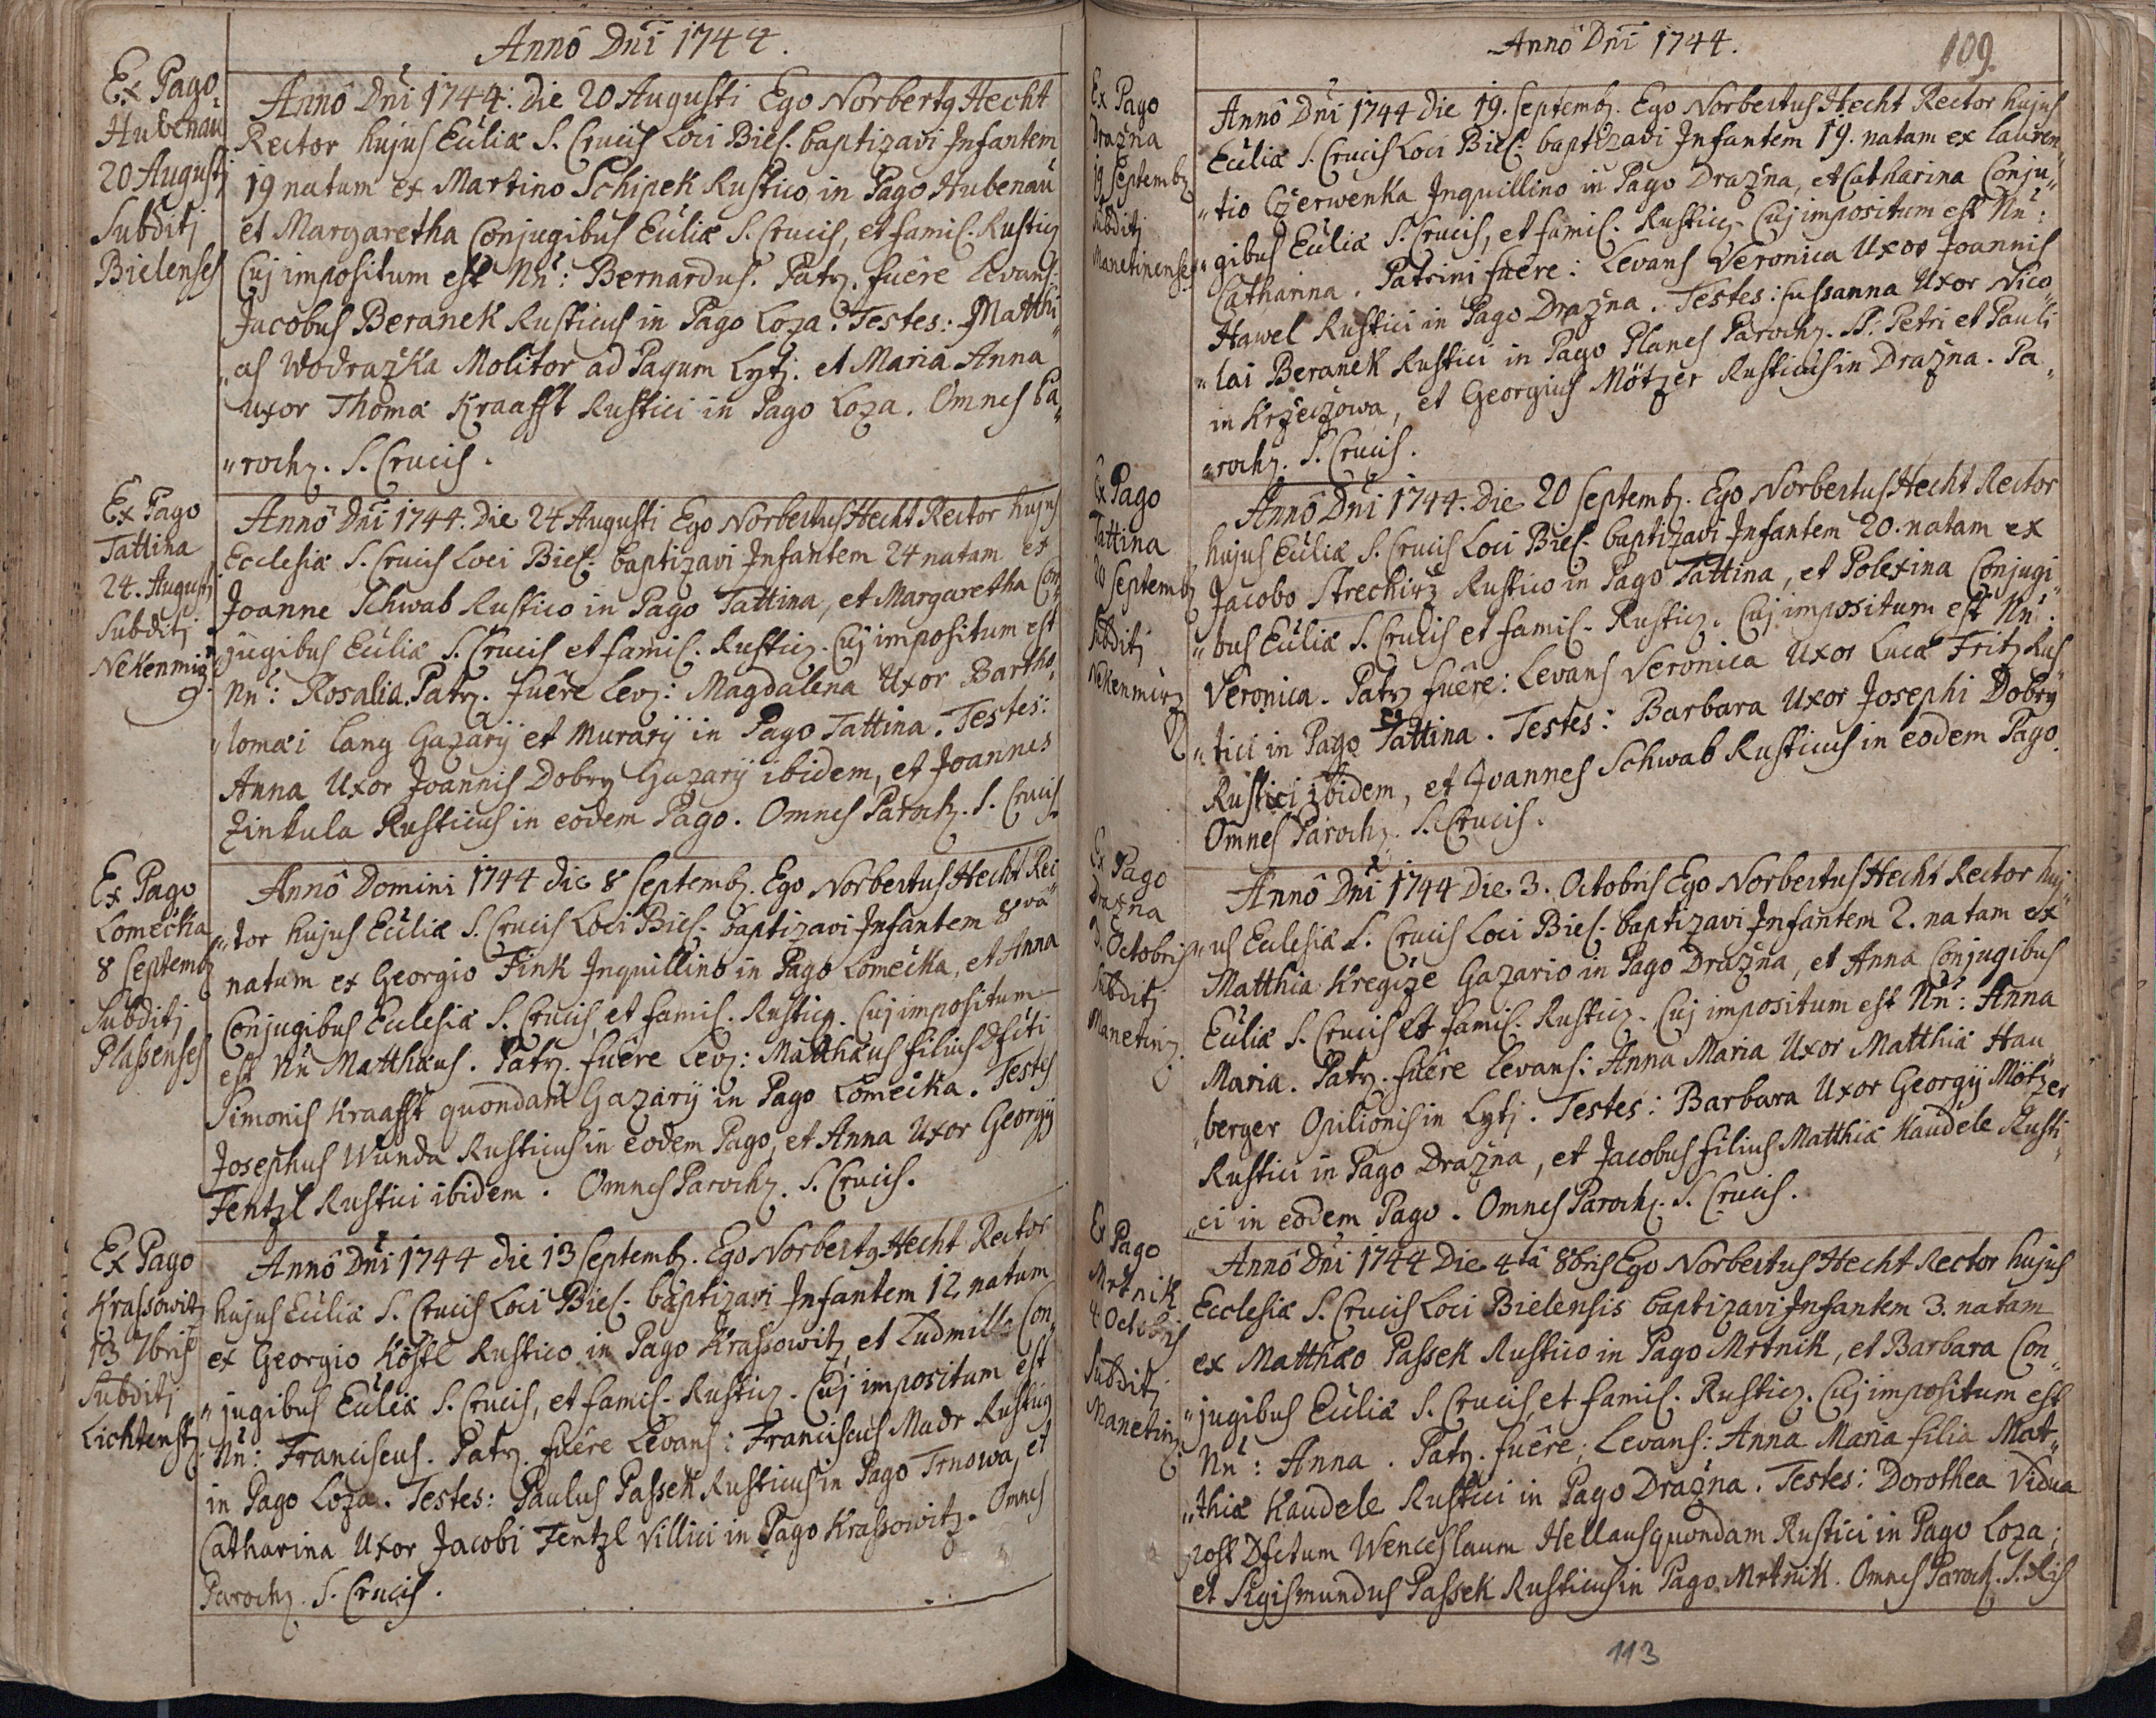 Annô Dñi 1744.
Ex Pago
Hubenau
20 Augusti
Subditj
Bielenses
Annô Dñi 1744. Die 20 Augusti Ego Norbertq Hecht
Rector hujus Eculiæ S. Crucis Loci Biel. baptizavi Infantem
19 natum ex Martino Schipek Rustico in Pago Hubenau
et Margaretha Conjugibus Eculiæ S. Crucis, et famil. Rusticz
Cuj impositum est Nñ: Bernardus. Patrz. fuêre Levans.
Jacobus Beranek Rusticus in Pago Loza. Testes: Matthi„
„as Wodrazka Molitor ad Pagum Lytj. et Maria Anna
uxor Thomæ Kraafft Rustici in Pago Loza. Omnes Pa„
„rochz. S. Crucis.
Ex Pago
Tattina
24. Augusti
Subditj
Nekenmirz.
Annô Dñi 1744. Die 24 Augusti Ego Norbertus Hecht Rector hujus
Ecclesiæ S. Crucis Loci Biel. baptizavi Infantem 24 natam ex
Joanne Schwab Rustico in Pago Tattina, et Margaretha Con„
„jugibus Eculiæ S. Crucis et famil. Rusticz. Cuj impositum est
Nñ: Rosalia. Patrz. fuêre Levz: Magdalena Uxor Bartho„
„lomæi Lang Gazarij et Murarij in Pago Tattina. Testes:
Anna Uxor Joannis Dobry Gazarij ibidem, et Joannes
Zinkula Rusticus in eodem Pago. Omnes Parochz. S. Crucis
Ex Pago
Lomecka
8 Septembz
Subditj
Plassenses
Annô Domini 1744 die 8 Septembz. Ego Norbertus Hecht Rec„
„tor hujus Eculiæ S. Crucis Loci Biel. baptizavi Infantem 8vâ
natum ex Georgio Fink Inquillino in Pago Lomecka, et Anna
Conjugibus Ecclesiæ S. Crucis, et famil. Rusticz. Cuj impositum
est Nñ Matthæus. Patrz. fuêre Levz: Matthæus filius Dfcti
Simonis Kraafft quondam Gazarij in Pago Lomecka. Testes
Josephus Wunda Rusticus in eodem Pago, et Anna Uxor Georgij
Fentzl Rustici ibidem. Omnes Parochz. S. Crucis.
Ex Pago
Krassowitz
13 7bris
Subditj
Lichtenstz.
Annô Dñi 1744 die 13 Septembz. Ego Norbertq Hecht Rector
hujus Eculiæ S. Crucis Loci Biel. baptizavi Infantem 12 natum
ex Georgio Köstl Rustico in Pago Krassowitz, et Ludmilla Con„
„jugibus Eculiæ S. Crucis, et famil. Rusticz. Cuj impositum est
Nñ: Franciscus. Patrz. fuêre Levans: Franciscus Madr Rusticq
in Pago Loza. Testes: Paulus Passek Rusticus in Pago Trnowa, et
Catharina Uxor Jacobi Fentzl Villici in Pago Krassowitz. Omnes
Parochz. S. Crucis.
Annô Dñi 1744.
109.
Ex Pago
Drazna
19 Septembz
Subditj
Manetinenses
Annô Dñi 1744 die 19. Septembz. Ego Norbertus Hecht Rector hujus
Eculiæ S. Crucis Loci Biel. baptizavi Infantem 19. natam ex Lauren„
„tio Czerwenka Inquillino in Pago Drazna, et Catharina Conju„
„gibus Eculiæ S. Crucis, et famil. Rusticz. Cuj impositum est Nñ:
Catharina. Patrini fuêre: Levans Veronica Uxor Joannis
Hawel Rustici in Pago Drazna. Testes: Sussanna Uxor Nico„
„lai Beranek Rustici in Pago Planes Parochz. SS. Petri et Pauli
in Krzeczowa, et Georgius Mötzer Rusticus in Drazna. Pa„
„rochz. S. Crucis.
Ex Pago
Tattina
20 Septembz
Subditj
Nekenmirz
Annô Dñi 1744. Die 20 Septembz. Ego Norbertus Hecht Rector
hujus Eculiæ S. Crucis Loci Biel. baptizavi Infantem 20. natam ex
Jacobo Strechirz Rustico in Pago Tattina, et Polexina Conjugi„
„bus Eculiæ S. Crucis et famil. Rusticz. Cuj impositum est Nñ:
Veronica. Patrz fuêre: Levans Veronica Uxor Lucæ Fritz Rus„
„tici in Pago Tattina. Testes: Barbara Uxor Josephi Dobry
Rustici ibidem, et Joannes Schwab Rusticus in eodem Pago.
Omnes Parochz. S. Crucis.
Ex Pago
Drazna
3. Octobris
Subditj
Manetinz.
Annô Dñi 1744 Die 3. Octobris Ego Norbertus Hecht Rector huj„
„us Ecclesiæ S. Crucis Loci Biel. baptizavi Infantem 2. natam ex
Matthia Kregize Gazario in Pago Drazna, et Anna Conjugibus
Eculiæ S. Crucis et famil. Rusticz. Cuj impositum est Nñ: Anna
Maria. Patrz. fuêre Levans: Anna Maria Uxor Matthiæ Hau„
„berger Opilionis in Lytj. Testes: Barbara Uxor Georgij Mötzer
Rustici in Pago Drazna, et Jacobus filius Matthiæ Kaudele Rusti„
„ci in eodem Pago. Omnes Parochz. S. Crucis.
Ex Pago
Mrtnik
4 Octobris
Subditj
Manetinz.
Annô Dñi 1744 Die 4tâ 8bris Ego Norbertus Hecht Rector hujus
Ecclesiæ S. Crucis Loci Bielensis baptizavi Infantem 3. natam
ex Matthæo Passek Rustico in Pago Mrtnik, et Barbara Con„
„jugibus Eculiæ S. Crucis, et famil. Rusticz. Cuj impositum est
Nñ: Anna. Patrz. fuêre; Levans: Anna Maria filia Mat„
„thiæ Kaudele Rustici in Pago Drazna. Testes: Dorothea Vidua
post Dfctum Wenceslaum Hellaus quondam Rustici in Pago Loza;
et Sigismundus Passek Rusticus in Pago Mrtnik. Omnes Paroch. S. Xcis
113